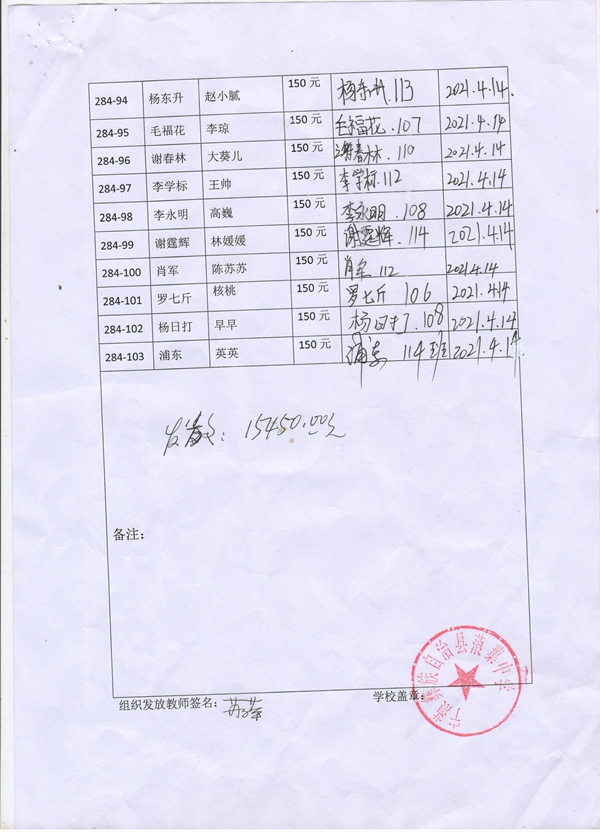 284-94 杨东升 赵小腻 150 元 杨东升.113 2021.4.14.
284-95 毛福花 李琼 150 元 毛福花.107 2021.4.14
284-96 谢春林 大葵儿 150 元 谢春林.110 2021.4.14
284-97 李学标 王帅 150 元 李学标112 2021.4.14
284-98 李永明 高巍 150 元 李永明.108 2021.4.14
284-99 谢霆辉 林媛媛 150 元 谢霆辉.114 2021.4.14
284-100 肖军 陈苏苏 150 元 肖军112 2021.4.14
284-101 罗七斤 核桃 150 元 罗七斤 106 2021.4.14
284-102 杨日打 早早 150 元 杨日打.108 2021.4.14
284-103 浦东 英英 150 元 浦东 114班 2021.4.14
15450.00元
备注：
组织发放教师签名： 学校盖章：
族自治县蒗蕖中学